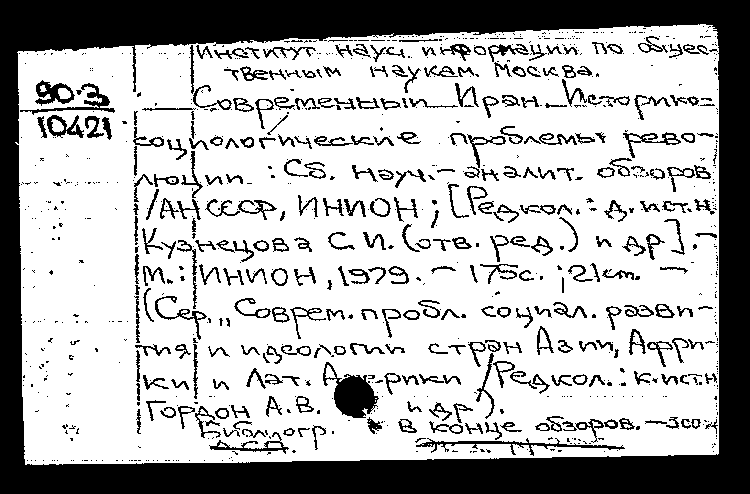 Институт науч. информации по общес-
твенным наукам. Москва.
90-3
10421
Современный Иран. Историко-
социологические проблемы рево-
люции : Сб. науч.-аналит. обзоров
/АН СССР, ИНИОН ; [Редкол.: д. ист. н.
Кузнецова С.И. (отв. ред.) и др]. –
М. : ИНИОН, 1979. – 175с. ; 21см. –
(Сер. „Соврем. пробл. социал. разви-
тия и идеологии стран Азии, Афри-
ки и Лат. Америки /Редкол.: к. ист н
Гордон А.В. и др).
Библиогр. в конце обзоров. –